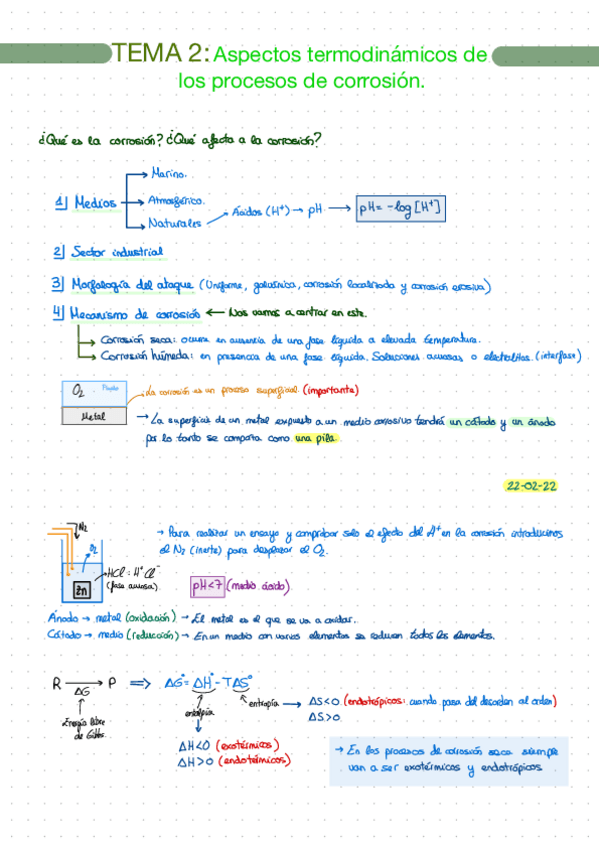 TEMA 2: Aspectos termodinámicos de
los procesos de corrosión.
¿Qué es la corrosión? ¿Qué afecta a la corrosión?
Marino.
1] Medios → Atmosférico.
Naturales → Ácidos (H⁺) → pH → pH = -log [H⁺]
2] Sector industrial
3] Morfología del ataque (Uniforme, galvánica, corrosión localizada y corrosión erosiva)
4] Mecanismo de corrosión ← Nos vamos a centrar en este.
→ Corrosión seca: ocurre en ausencia de una fase líquida a elevada temperatura.
→ Corrosión húmeda: en presencia de una fase líquida. Soluciones acuosas o electrolitos. (interfase)
O₂ Fluido
Metal
La corrosión es un proceso superficial. (importante)
→ La superficie de un metal expuesto a un medio corrosivo tendrá un cátodo y un ánodo
por lo tanto se comporta como una pila.
22-02-22
N₂
O₂
HCl = H⁺ Cl⁻
(fase acuosa)
Zn
→ Para realizar un ensayo y comprobar solo el efecto del H⁺ en la corrosión introducimos
el N₂ (inerte) para desplazar el O₂.
pH<7 (medio ácido).
Ánodo → metal (oxidación) → El metal es el que se va a oxidar.
Cátodo → medio (reducción) → En un medio con varios elementos se reducen todos los elementos.
R → P ⇒ ΔG° = ΔH° - TΔS°
ΔG
Energía libre
de Gibbs
entalpía
entropía → ΔS<0 (endotrópicos: cuando pasa del desorden al orden)
ΔS>0
ΔH<0 (exotérmicos)
ΔH>0 (endotérmicos)
→ En los procesos de corrosión seca siempre
van a ser exotérmicos y endotrópicos.